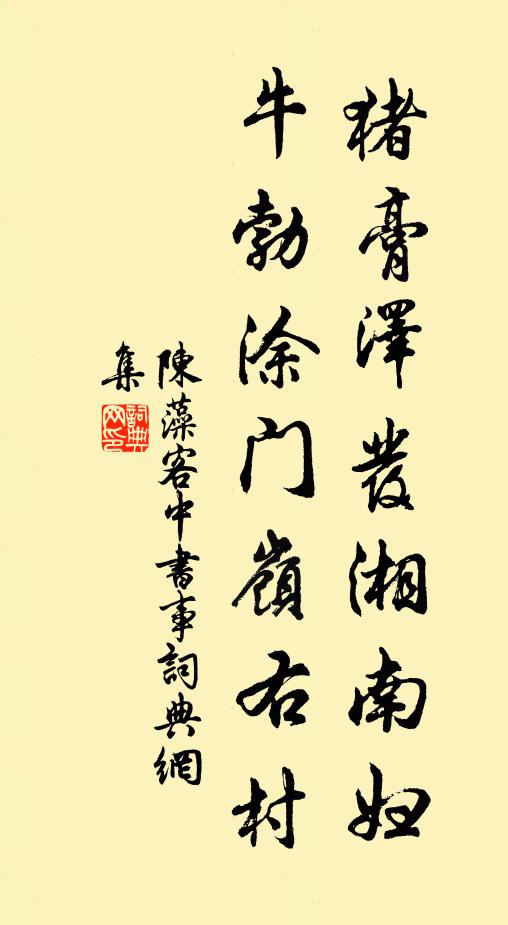 猪膏澤髮湘南妇
牛勃涂門嶺右村
陳藻客中書事詞典網
集
詞典
网印